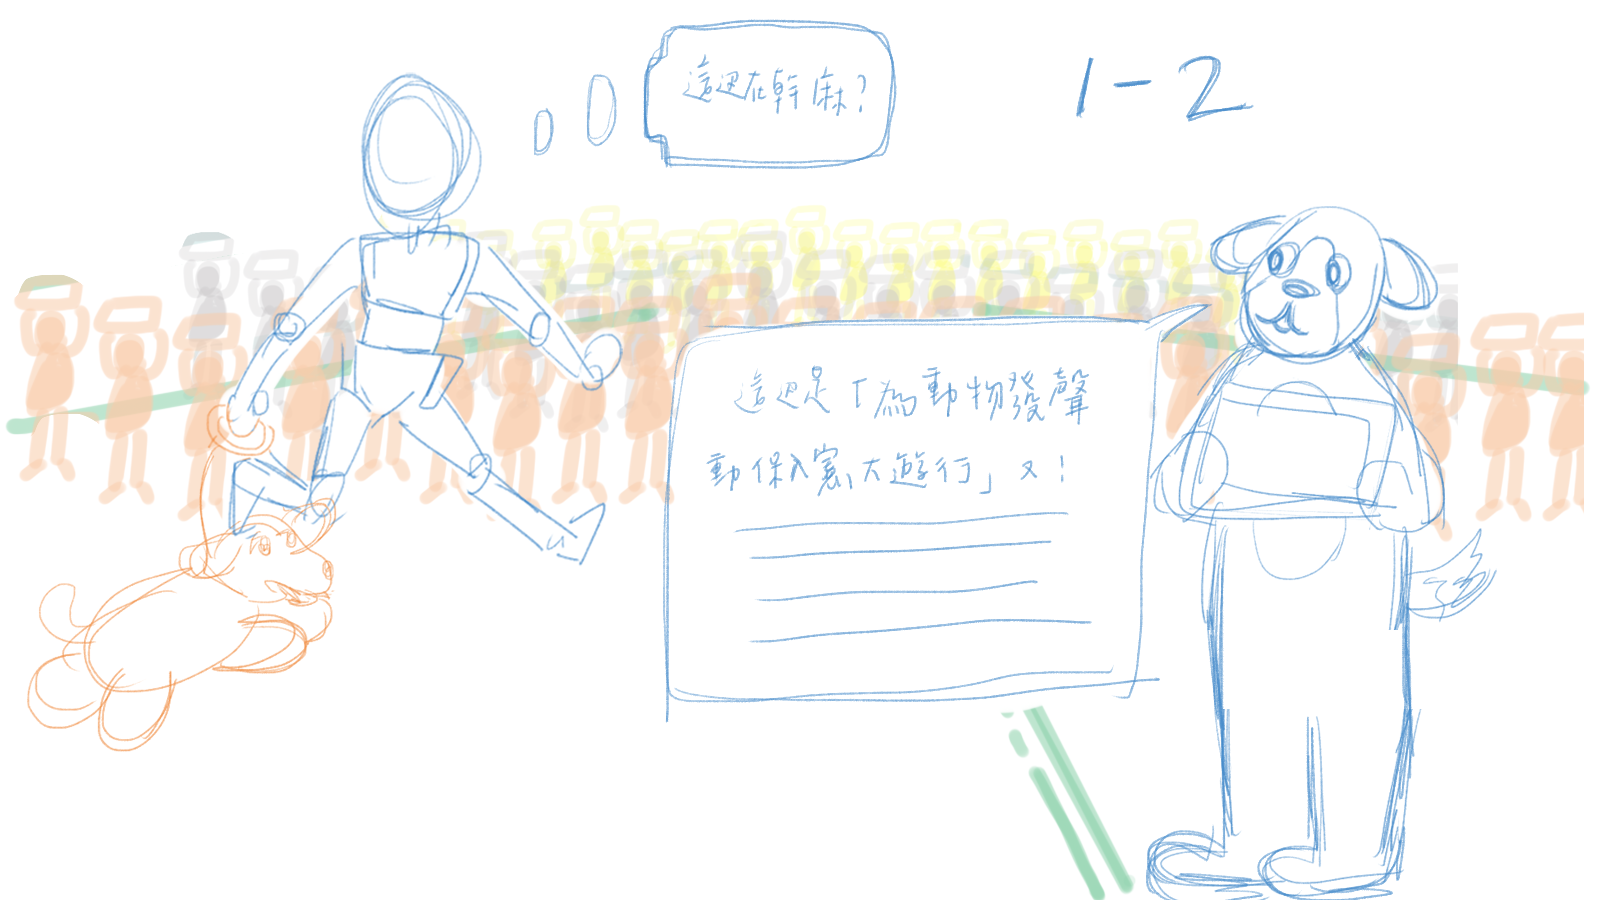 這裡在幹麻?
1-2
這裡是「為動物發聲
動保入憲大遊行」又!